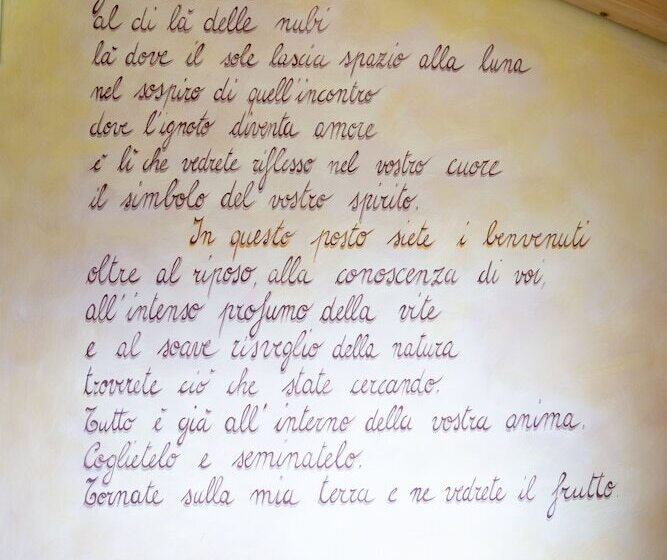 al di là delle nubi
là dove il sole lascia spazio alla luna
nel sospiro di quell'incontro
dove l'ignoto diventa amore
è lì che vedrete riflesso nel vostro cuore
il simbolo del vostro spirito.
In questo posto siete i benvenuti
oltre al riposo, alla conoscenza di voi,
all'intenso profumo della vite
e al soave risveglio della natura
troverete ciò che state cercando.
Tutto è già all'interno della vostra anima.
Coglietelo e seminatelo.
Tornate sulla mia terra e ne vedrete il frutto.